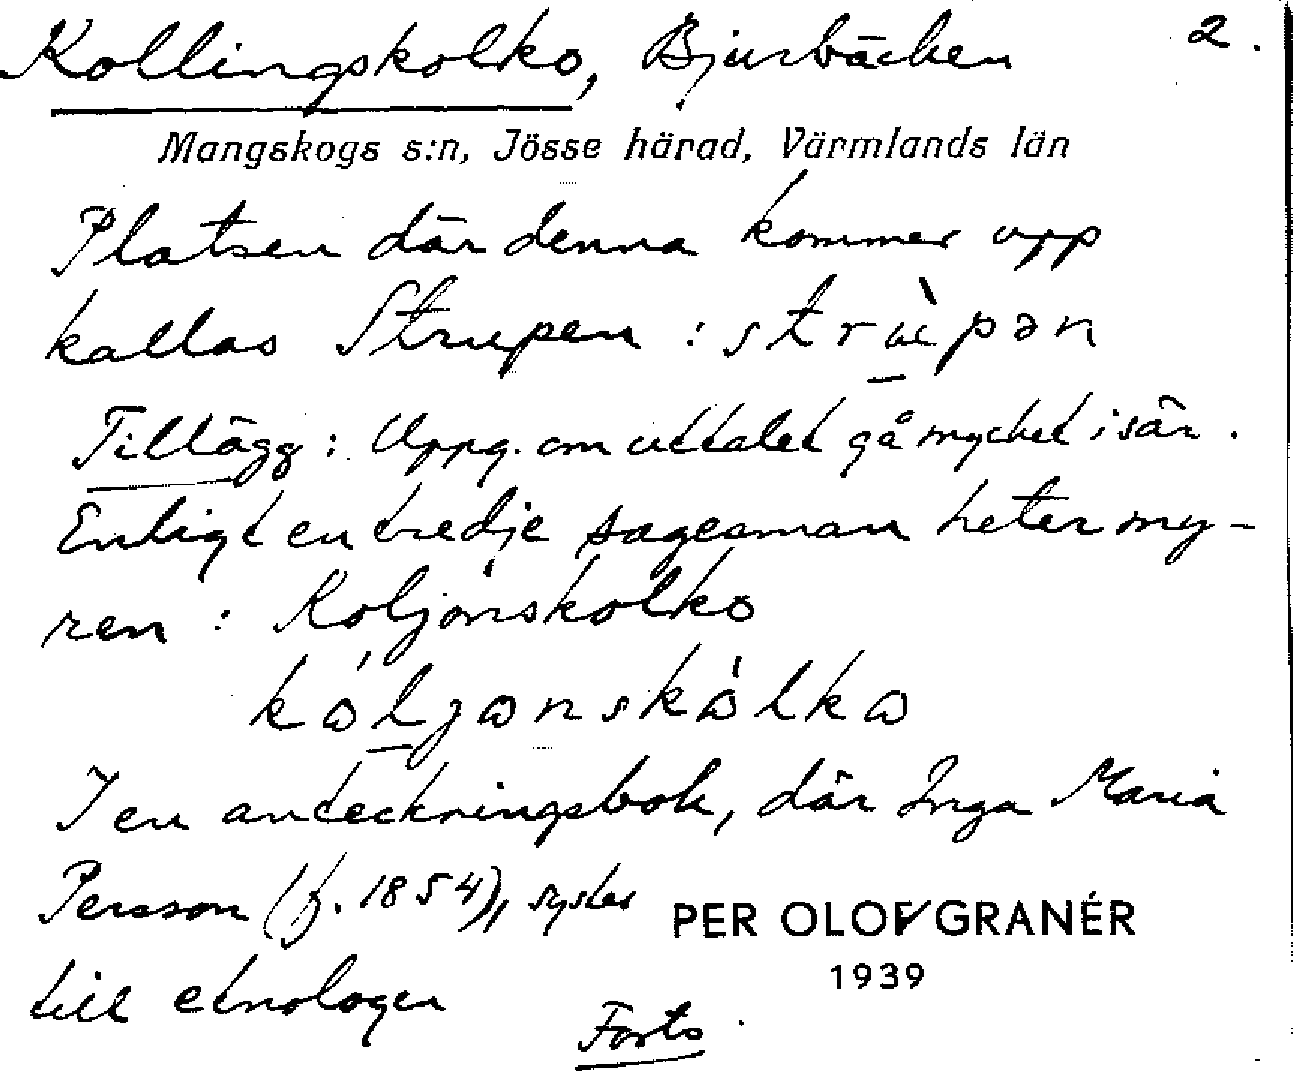 Kollingskolko, Bjurbäcken 2.
Mangskogs s:n, Jösse härad, Värmlands län
Platsen där denna kommer upp
kallas Strupen : strùpən
Tillägg : Uppg. om uttalet gå mycket isär.
Enligt en tredje sagesman heter my-
ren : Koljonskolko
I en anteckningsbok, där Inga Maria
Persson (f. 1854), syster
till etnologen
PER OLOF GRANÉR
1939
Forts.